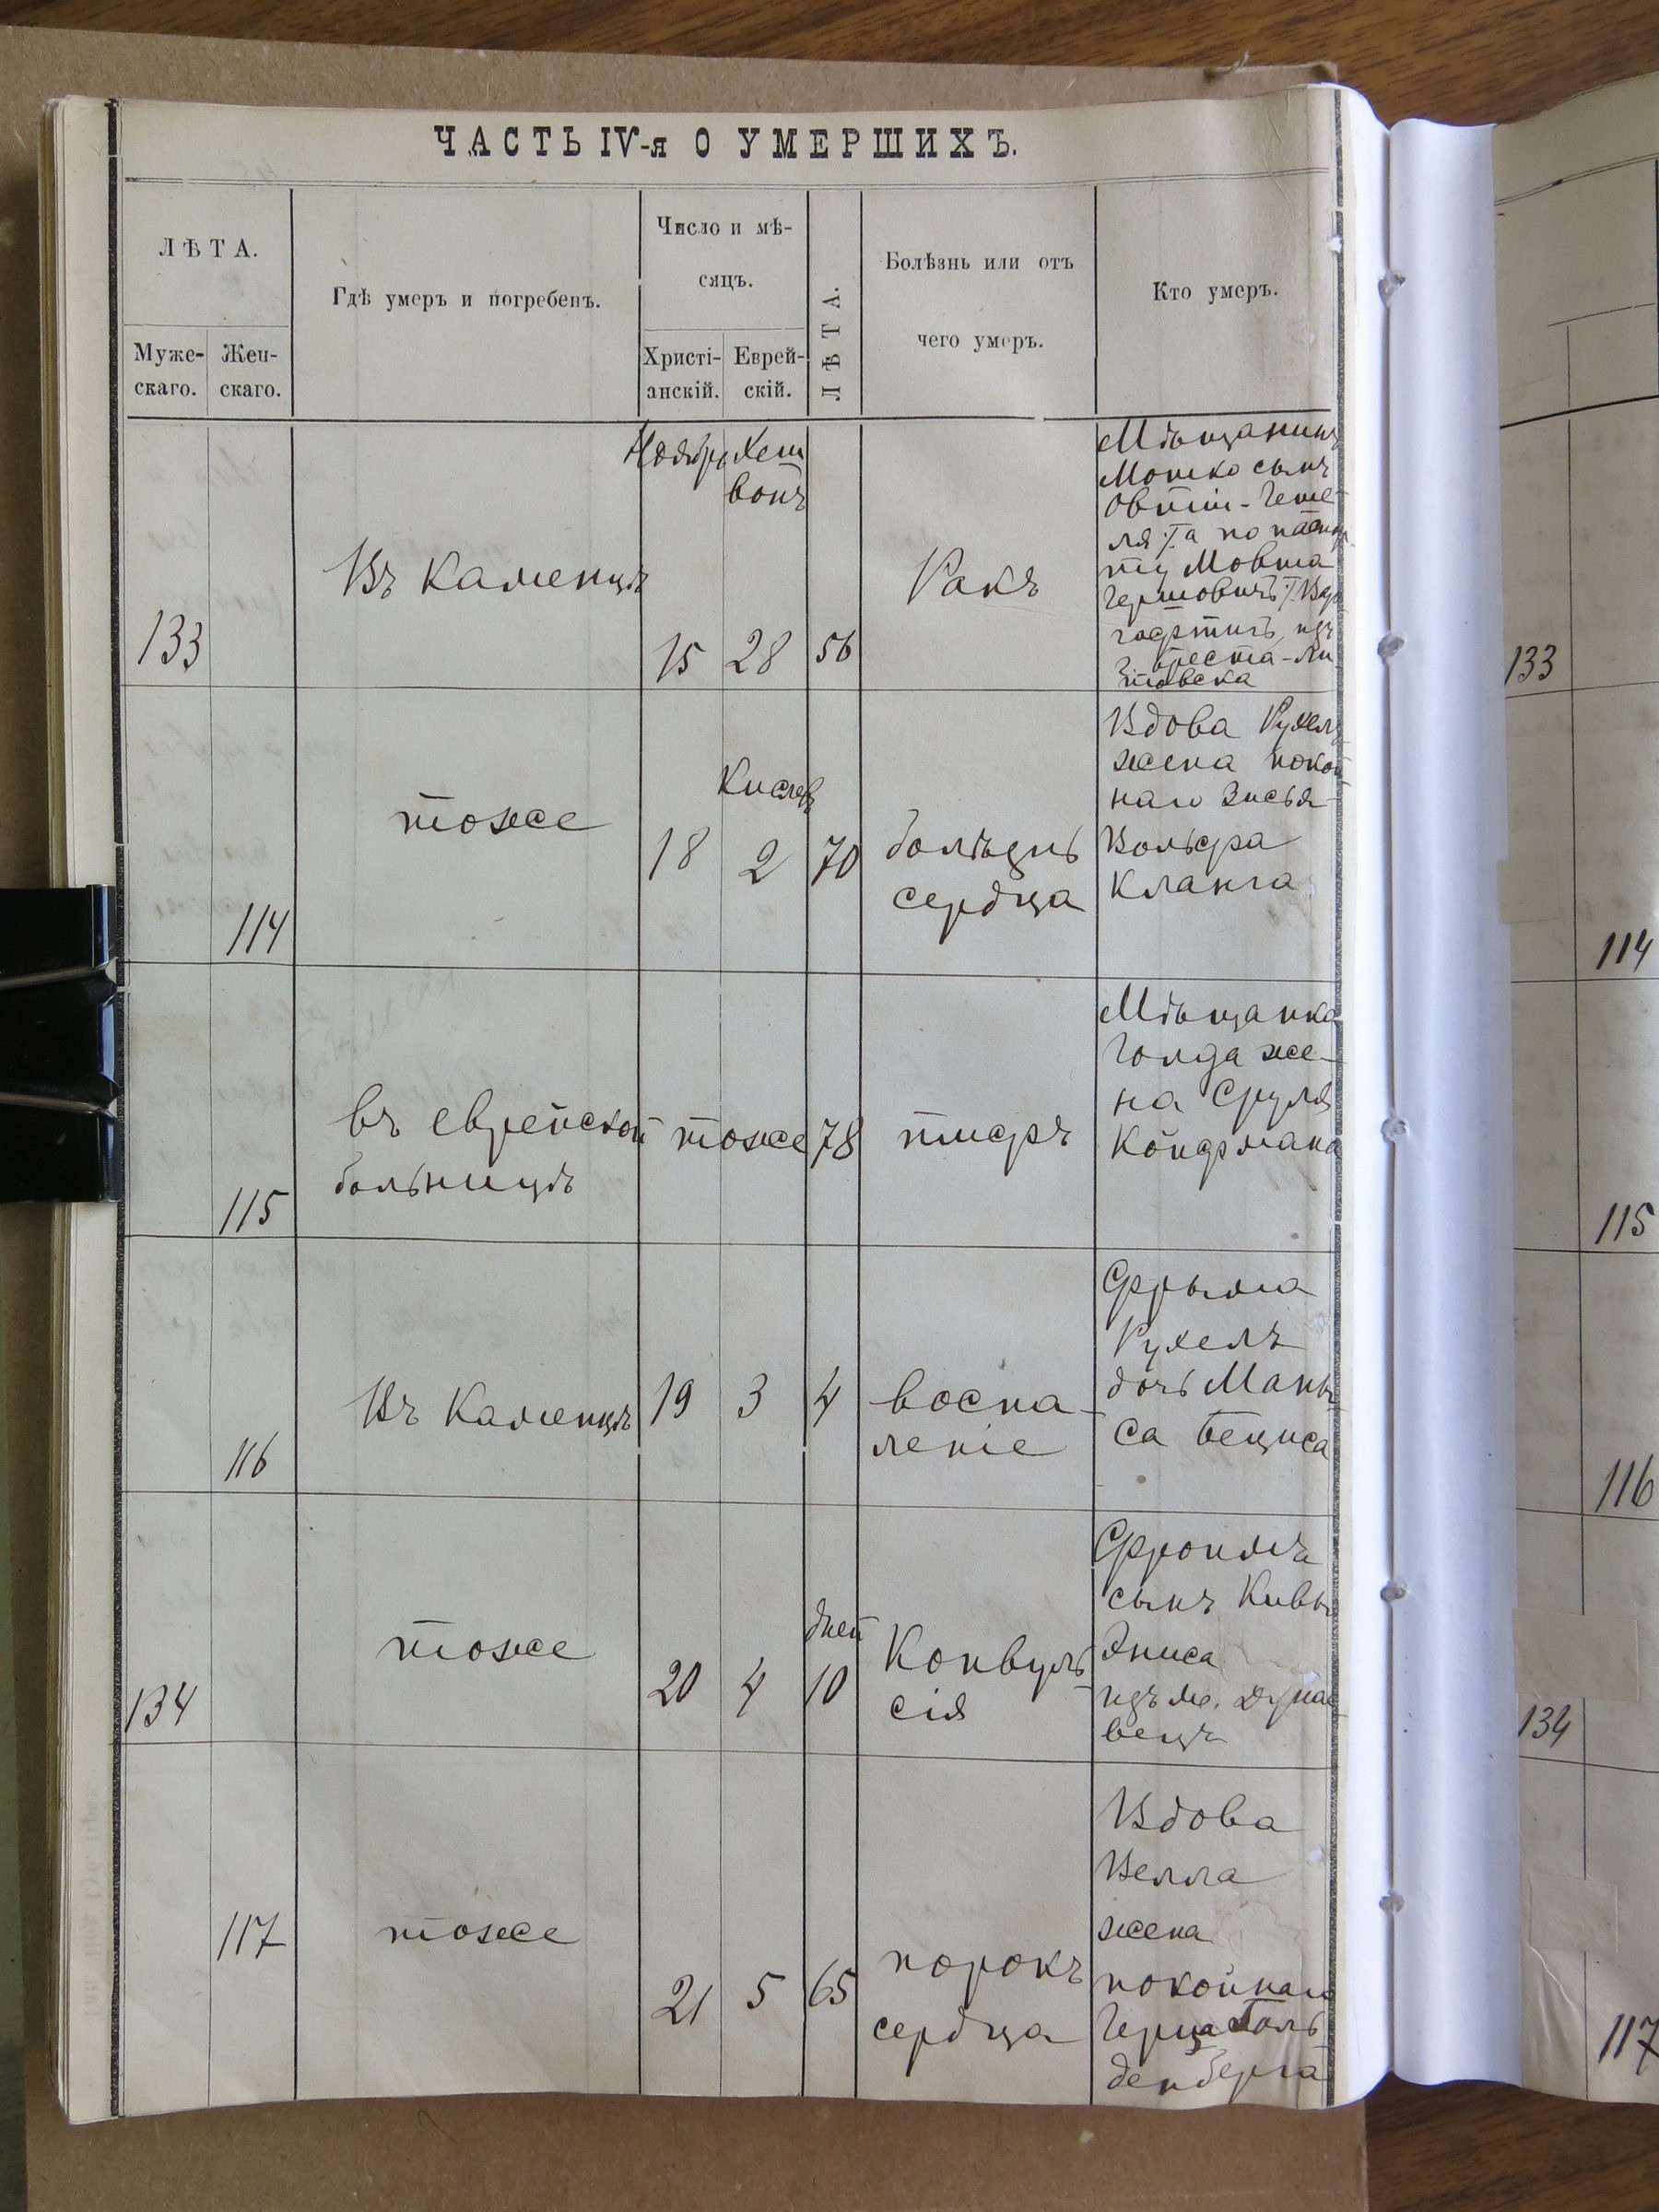 ЧАСТЬ IV-я О УМЕРШИХЪ.
ЛѢТА.
Муже-
скаго.
Жен-
скаго.
Гдѣ умеръ и погребенъ.
Число и мѣ-
сяцъ.
Христі-
анскій.
Еврей-
скій.
ЛѢТА.
Болѣзнь или отъ
чего умеръ.
Кто умеръ.
133
Въ Каменцѣ
Ноябрь
15
Хеш
вонъ
28
56
Ракъ
Мѣщанинъ
Мошко сынъ
Овшій-Геше-
ля /: а по паспор-
ту Мовша
Гершовичъ :/
из
Бреста-Ли
товска
133
114
тоже
18
Кислевъ
2
70
болѣзнь
сердца
Вдова Рухель
жена покой
наго Зисья-
Вольфа
Кланга
114
115
въ еврейской
больницѣ
тоже
78
тифъ
Мѣщанка
Голда же-
на Сруля
Койфмана
115
116
Въ Каменцѣ
19
3
4
воспа-
леніе
Фрыма
Рухель
дочь Маны
са Бециса
116
134
тоже
20
4
дней
10
Конвуль
сія
Фроимъ
сынъ Кивы
Эниса
изъ м. Дунае
вецъ
134
117
тоже
21
5
65
порокъ
сердца
Вдова
Велла
жена
покойнаго
Герша Голь
денберга
117